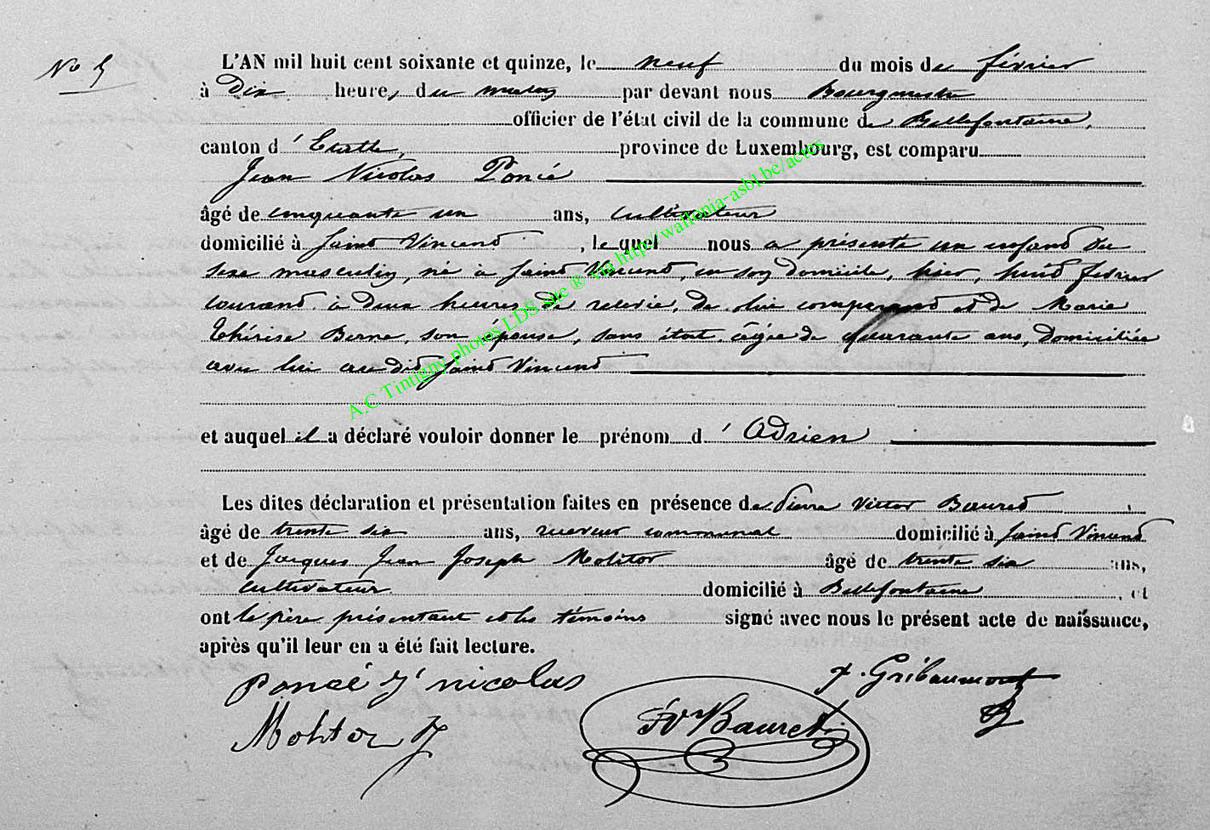 No 5
L'AN mil huit cent soixante et quinze, le neuf du mois de février
à Dix heures du matin par devant nous Bourgmestre
officier de l'état civil de la commune de Bellefontaine,
canton d'Etalle, province de Luxembourg, est comparu
Jean Nicolas Poncé
âgé de cinquante un ans, cultivateur
domicilié à Saint Vincent, lequel nous a présenté un enfant du
sexe masculin, né à Saint Vincent, en son domicile, hier, huit février
courant à deux heures de relevée, de lui comparant et de Marie
Thérèse Berne, son épouse, sans état, âgée de quarante ans, Domiciliée
avec lui au dit Saint Vincent
et auquel il a déclaré vouloir donner le prénom d'Adrien
Les dites déclaration et présentation faites en présence de Pierre Victor Bauret
âgé de trente six ans, receveur communal domicilié à Saint Vincent
et de Jacques Jean Joseph Molitor âgé de trente six ans,
cultivateur domicilié à Bellefontaine, et
ont le père présentant et les témoins signé avec nous le présent acte de naissance,
après qu'il leur en a été fait lecture.
Poncé J nicolas
Gribaumont
Molitor J
PV Bauret
A.C Tintigny photos LDS site ® via http://wallonia-asbl.be/actes